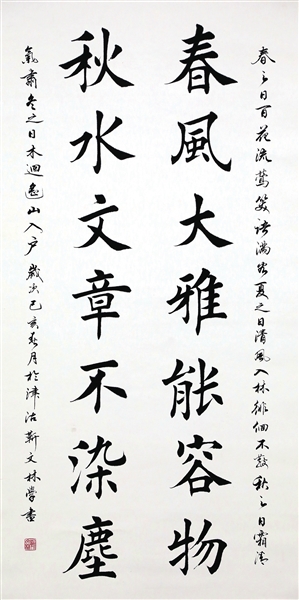 春之日百花流莺笑语满堂夏之日清风入林徘徊不散秋之日霜清
春風大雅能容物
秋水文章不染塵
氣肅冬之日木迴意山入户歲次己亥春月於津沽靳文林學書